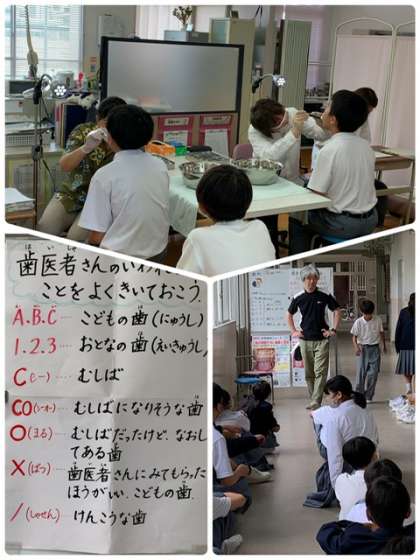 はいしゃ
歯医者さんのいわれ
ことをよくきいておこう。
A.B.C… こどもの歯(にゅうし)
1.2.3… おとなの歯(えいきゅうし)
C(シー)… むしば
CO(シーオー)… むしばになりそうな歯
O(まる)… むしばだったけど、なおし
てある歯
X(ばつ)… 歯医者さんにみてもらった
ほうがいい、こどもの歯
/(しゃせん) けんこうな歯